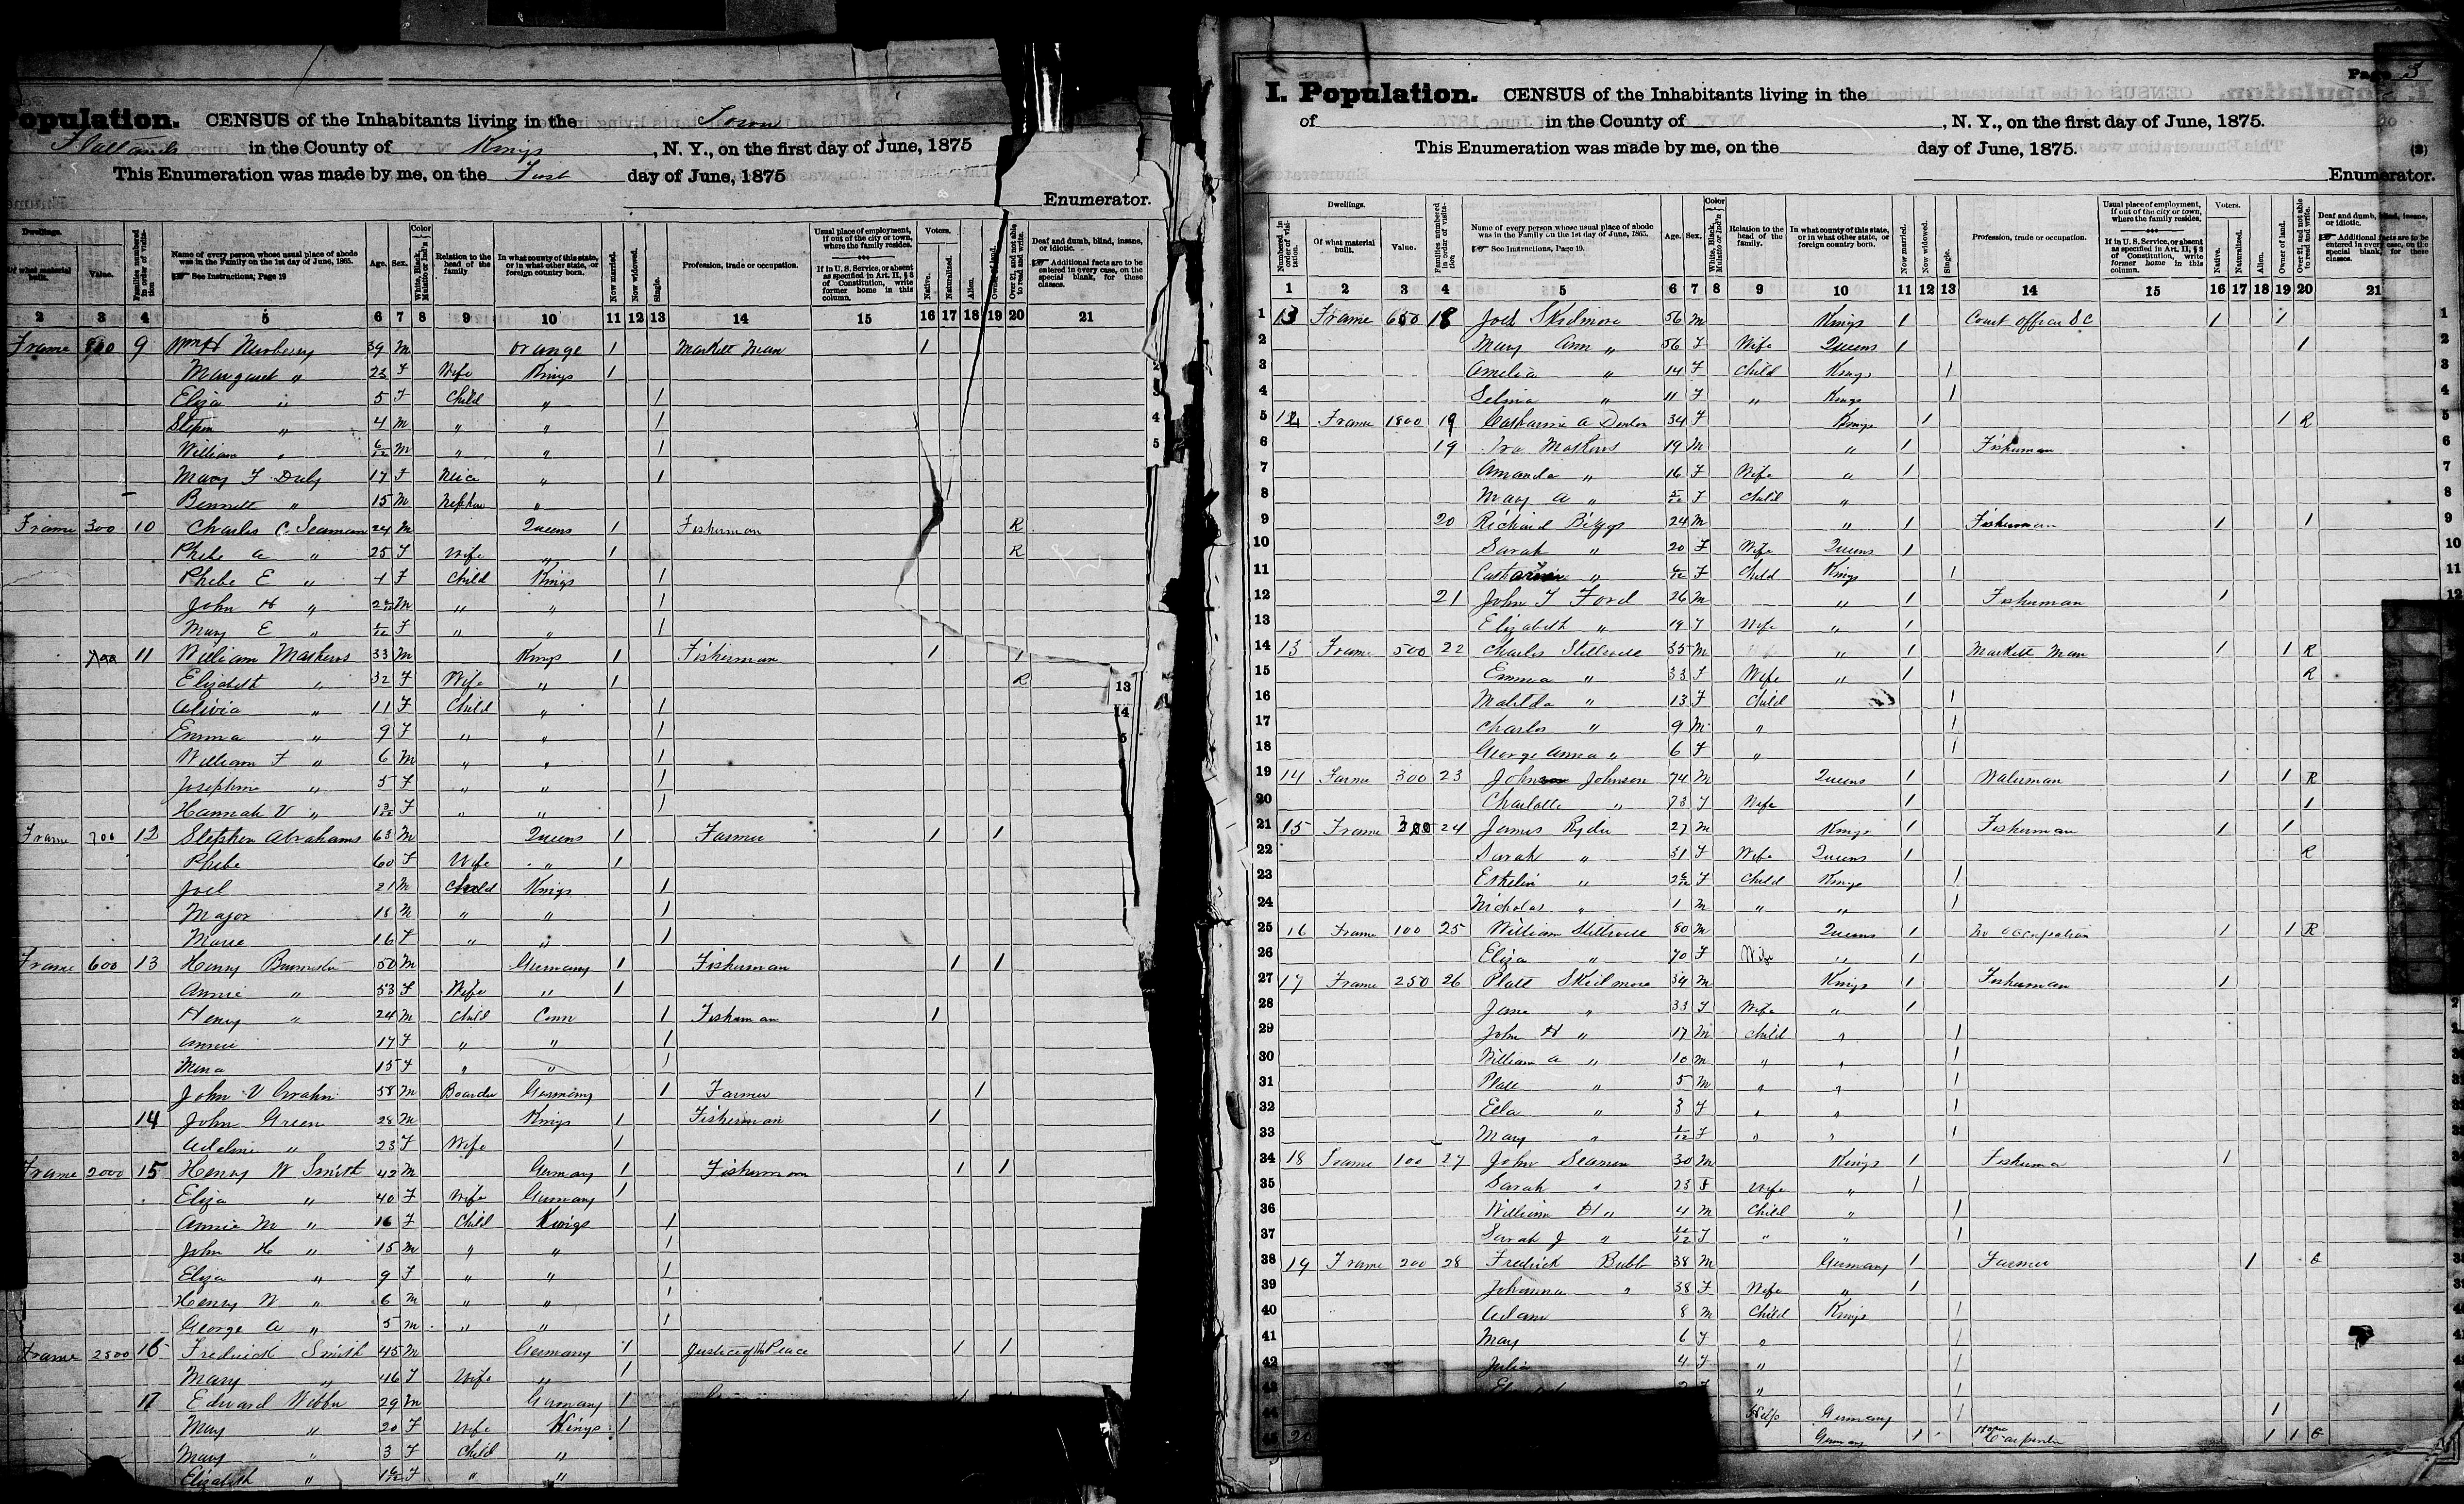 Population. CENSUS of the Inhabitants living in the Town
Flatlands in the County of Kings, N. Y., on the first day of June, 1875
This Enumeration was made by me, on the First day of June, 1875
Enumerator.
Dwellings. Of what material built. Value. Families numbered in order of visitation Name of every person whose usual place of abode was in the Family on the 1st day of June, 1865. See Instructions, Page 19 Age. Sex. Color White, Black, Mulatto or Ind'n Relation to the head of the family In what county of this state, or in what other state, or foreign country born. Now married. Now widowed. Single. Profession, trade or occupation. Usual place of employment, if out of the city or town, where the family resides. If in U. S. Service, or absent as specified in Art. II, § 3 of Constitution, write former home in this column. Voters. Native. Naturalized. Alien. Owner of land. Over 21, and not able to read and write. Deaf and dumb, blind, insane, or idiotic. Additional facts are to be entered in every case, on the special blank, for these classes.
2 3 4 5 6 7 8 9 10 11 12 13 14 15 16 17 18 19 20 21
Frame 9 Wm H Newberry 39 M Orange 1 Markett Man 1
Margaret " 23 F Wife Kings 1
Eliza " 5 F Child " 1
Stephn " 4 M " " 1
William " 6/12 M " " 1
Mary F 17 F Neice " 1
Bennett " 15 M Nephew "
Frame 300 10 Charles C Seaman 24 M Queens 1 Fisherman R
Phebe A " 25 F Wife " 1 R
Phebe E " 4 F Child Kings 1
John H " M " " 1
Mary E " F " " 1
11 William Mathews 33 M Kings 1 Fisherman 1 1
Elizabeth " 32 F Wife " 1 R
Alivia " 11 F Child " 1
Emma " 9 F " " 1
William F " 6 M " " 1
Josephine " 5 F " " 1
Hannah V " F " " 1
Frame 700 12 Stephen Abrahams 63 M Queens 1 Farmer 1 1
Phebe 60 F Wife " 1
Joel 21 M Child Kings 1
Major 18 M " " 1
Marie 16 F " " 1
Frame 600 13 Henry 50 M Germany 1 Fisherman 1 1
Annie " 53 F Wife " 1
Henry " 24 M Child Conn 1 Fisherman 1
Annie 17 F " " 1
Mina 15 F " " 1
John V 58 M Boarder Germany 1 Farmer 1
14 John Green 28 M Kings 1 Fisherman 1
Adeline " 23 F Wife 1
Frame 2000 15 Henry W Smith 42 M Germany 1 Fisherman 1 1
Eliza " 40 F Wife Germany 1
Annie M " 16 F Child Kings 1
John H " 15 M " " 1
Eliza " 9 F " " 1
Henry W " 6 M " " 1
George A " 5 M " " 1
Frame 2500 16 Fredrick Smith 45 M Germany 1 Justice of the Peace 1 1
Mary " 46 F Wife " 1
17 Edward Webber 29 M Germany 1
Mary " 20 F Wife Kings 1
Mary " 3 F Child "
Elizabeth " 1 6/12 F " "
Page 3
I. Population. CENSUS of the Inhabitants living in the
of in the County of , N. Y., on the first day of June, 1875.
This Enumeration was made by me, on the day of June, 1875.
(3)
Enumerator.
Dwellings. Numbered in order of visitation Of what material built. Value. Families numbered in order of visitation Name of every person whose usual place of abode was in the Family on the 1st day of June, 1865. See Instructions, Page 19. Age. Sex. Color White, Black, Mulatto or Ind'n Relation to the head of the family. In what county of this state, or in what other state, or foreign country born. Now married. Now widowed. Single. Profession, trade or occupation. Usual place of employment, if out of the city or town, where the family resides. If in U. S. Service, or absent as specified in Art. II, § 3 of Constitution, write former home in this column. Voters. Native. Naturalized. Alien. Owner of land. Over 21, and not able to read and write. Deaf and dumb, blind, insane, or idiotic. Additional facts are to be entered in every case, on the special blank, for these classes.
1 2 3 4 5 6 7 8 9 10 11 12 13 14 15 16 17 18 19 20 21
1 Frame 600 18 Joel Skidmore 56 M Kings 1 Court officer S C 1 1 1
2 Mary Ann " 56 F Wife Queens 1 1 2
3 Amelia " 14 F Child Kings 1 3
4 Selma " 11 F " Kings 1 4
5 12 Frame 1800 19 Catharine A Denton 34 F Kings 1 1 R 5
6 19 Ira Mathews 19 M " 1 Fisherman 6
7 Amanda " 16 F Wife " 1 7
8 Mary A " F Child " 8
9 20 Richard Biggs 24 M " 1 Fisherman 1 1 9
10 Sarah " 20 F Wife Queens 1 10
11 " F Child Kings 1 11
12 21 John T Ford 26 M " 1 Fisherman 1 12
13 Elizabeth " 19 F Wife " 1
14 13 Frame 500 22 Charles Stillwell 35 M " 1 Markett Man 1 1 R
15 Emma " 33 F Wife " 1 R
16 Matilda " 13 F Child 1
17 Charles " 9 M " 1
18 George Anna " 6 F " 1
19 14 Farme 300 23 John Johnson 74 M Queens 1 Waterman 1 1 R
20 Charlotte " 73 F Wife 1 1
21 15 Frame 300 24 James Ryder 27 M Kings 1 Fisherman 1 1
22 Sarah " 31 F Wife Queens 1 R
23 " F Child Kings 1
24 Nicholas " 1 M " " 1
25 16 Frame 100 25 William Stillwell 80 M Queens 1 No occupation 1 1 R
26 Eliza " 70 F Wife " 1
27 17 Frame 250 26 Platt Skidmore 34 M Kings 1 Fisherman 1
28 Jane " 33 F Wife " 1
29 John H " 17 M Child " 1
30 William A " 10 M " " 1
31 Platt " 5 M " " 1
32 Ella " 3 F " " 1
33 Mary " F " " 1
34 18 Frame 100 27 John Seaman 30 M Kings 1 Fisherman 1
35 Sarah " 23 F Wife " 1
36 William H " 4 M Child " 1
37 Sarah J " 11/12 F " " 1
38 19 Frame 200 28 Fredrick Bubb 38 M Germany 1 Farmer 1 G
39 Johanna " 38 F Wife " 1
40 Adam 8 M Child Kings 1
41 May 6 F " 1
42 Julia 4 F " 1
43 " 1
44 Help Germany 1 1
45 Germany 1 Carpenter 1 1 G